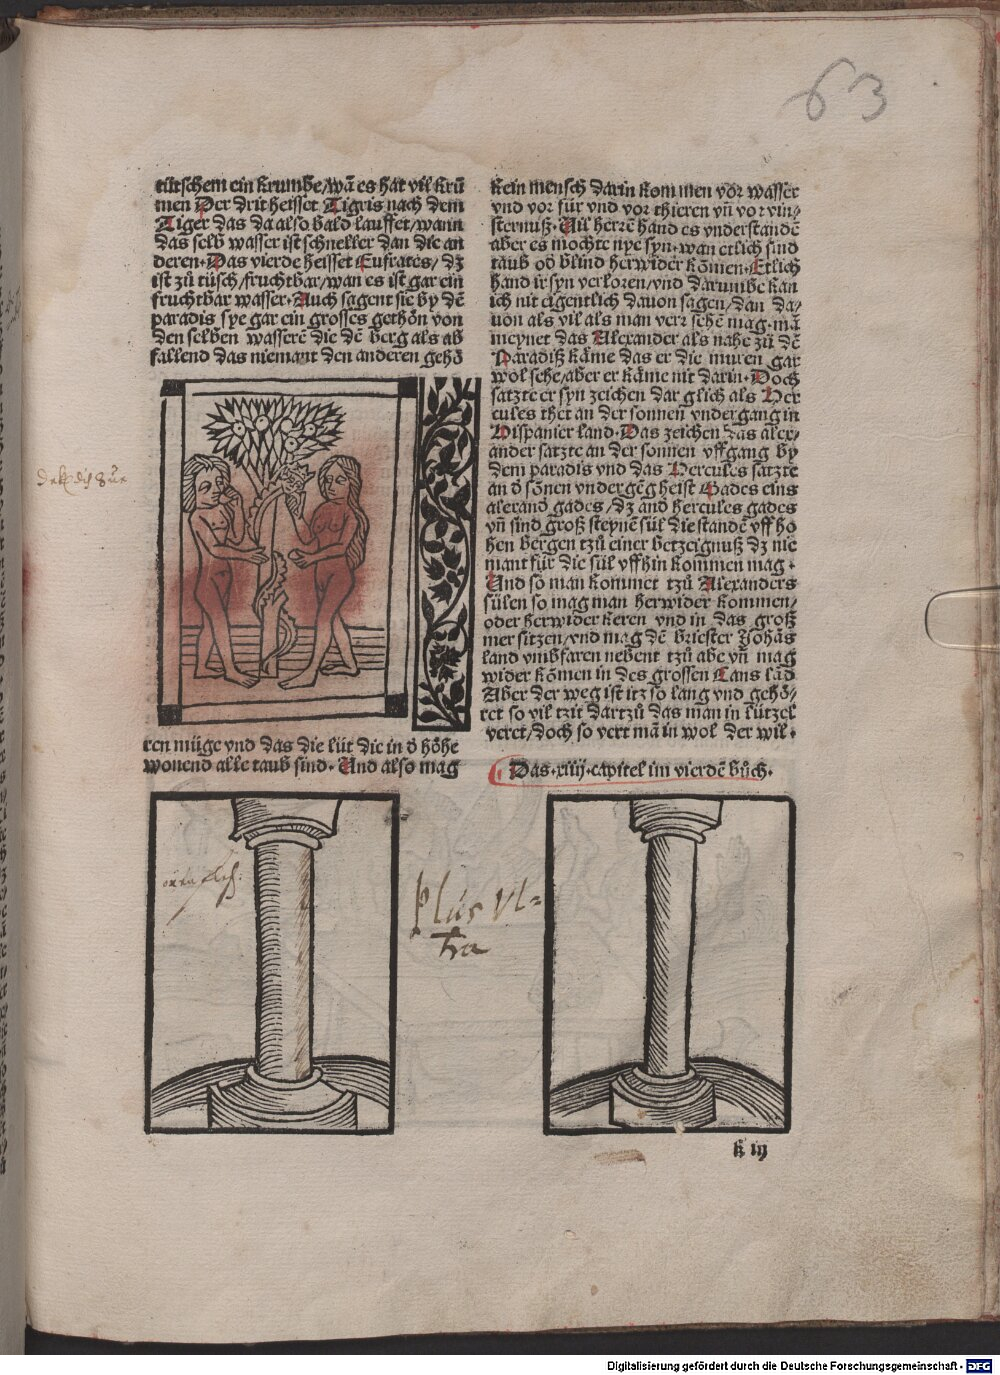 63
tütschem ein krumbe/wā es hat vil krū
men Der drit heisset Tigris nach dem
Tiger das da also bald lauffet/wann
das selb wasser ist schneller dan die an
deren·Das vierde heisset Eufrates/ dz
ist zů tüsch/fruchtbar/wan es ist gar ein
fruchtbar wasser·Auch sagent sie by dē
paradis sye gar ein grosses gethön von
den selben wasserē die dē berg als ab
fallend das niemant den anderen gehö
ren müge vnd das die lüt die in d̄ höhe
wonend alle taub sind· Und also mag
kein mensch darin kommen vor wasser
vnd vor für vnd vor thieren vn̄ vor vin/
sternuß·Uil herrē hand es vnderstandē
aber es mochte nye syn·wan etlich sind
taub od̄ blind herwider kōmen·Etlich
hand ir syn verloren/vnd darumbe kan
ich nit eigentlich dauon sagen/dan da/
uon als vil als man verr sehē mag·mā
meynet das Alexander als nahe zů dē
Paradiß kāme das er die muren gar
wol sehe/aber er kāme nit darin·Doch
satzte er syn zeichen dar glich als Her
cules thet an der sonnen vndergang in
Hispanier land·Das zeichen das alex/
ander satzte an der sonnen vffgang by
dem paradis vnd das Hercules satzte
an d̄ sōnen vndergēg heist Gades eins
alexand̄ gades/dz and̄ hercules gades
vn̄ sind groß steynē sül die standē vff ho
hen bergen tzů einer betzeignuß dz nie
mant für die sül vffhin kommen mag·
Und so man kommet tzů Alexanders
sülen so mag man herwider kommen/
oder herwider keren vnd in das groß
mer sitzen/vnd mag dē briester Johās
land vmbfaren nebent tzů abe vn̄ mag
wider kōmen in des grossen Cans lād
Aber der weg ist itz so lang vnd gehö/
ret so vil tzit dartzů das man in lützel
veret/doch so vert mā in wol der wil·
Das·xiiij·capitel im vierdē bůch·
plus vl=
tra
k iij
Digitalisierung gefördert durch die Deutsche Forschungsgemeinschaft - DFG